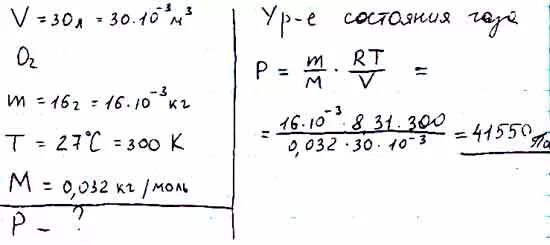 V = 30л = 30·10⁻³ м³
O₂
m = 16г = 16·10⁻³ кг
T = 27°C = 300 K
M = 0,032 кг/моль
P – ?
Ур-е состояния газа
P = m/M · RT/V =
= 16·10⁻³·8,31·300 / 0,032·30·10⁻³ = 41550 Па